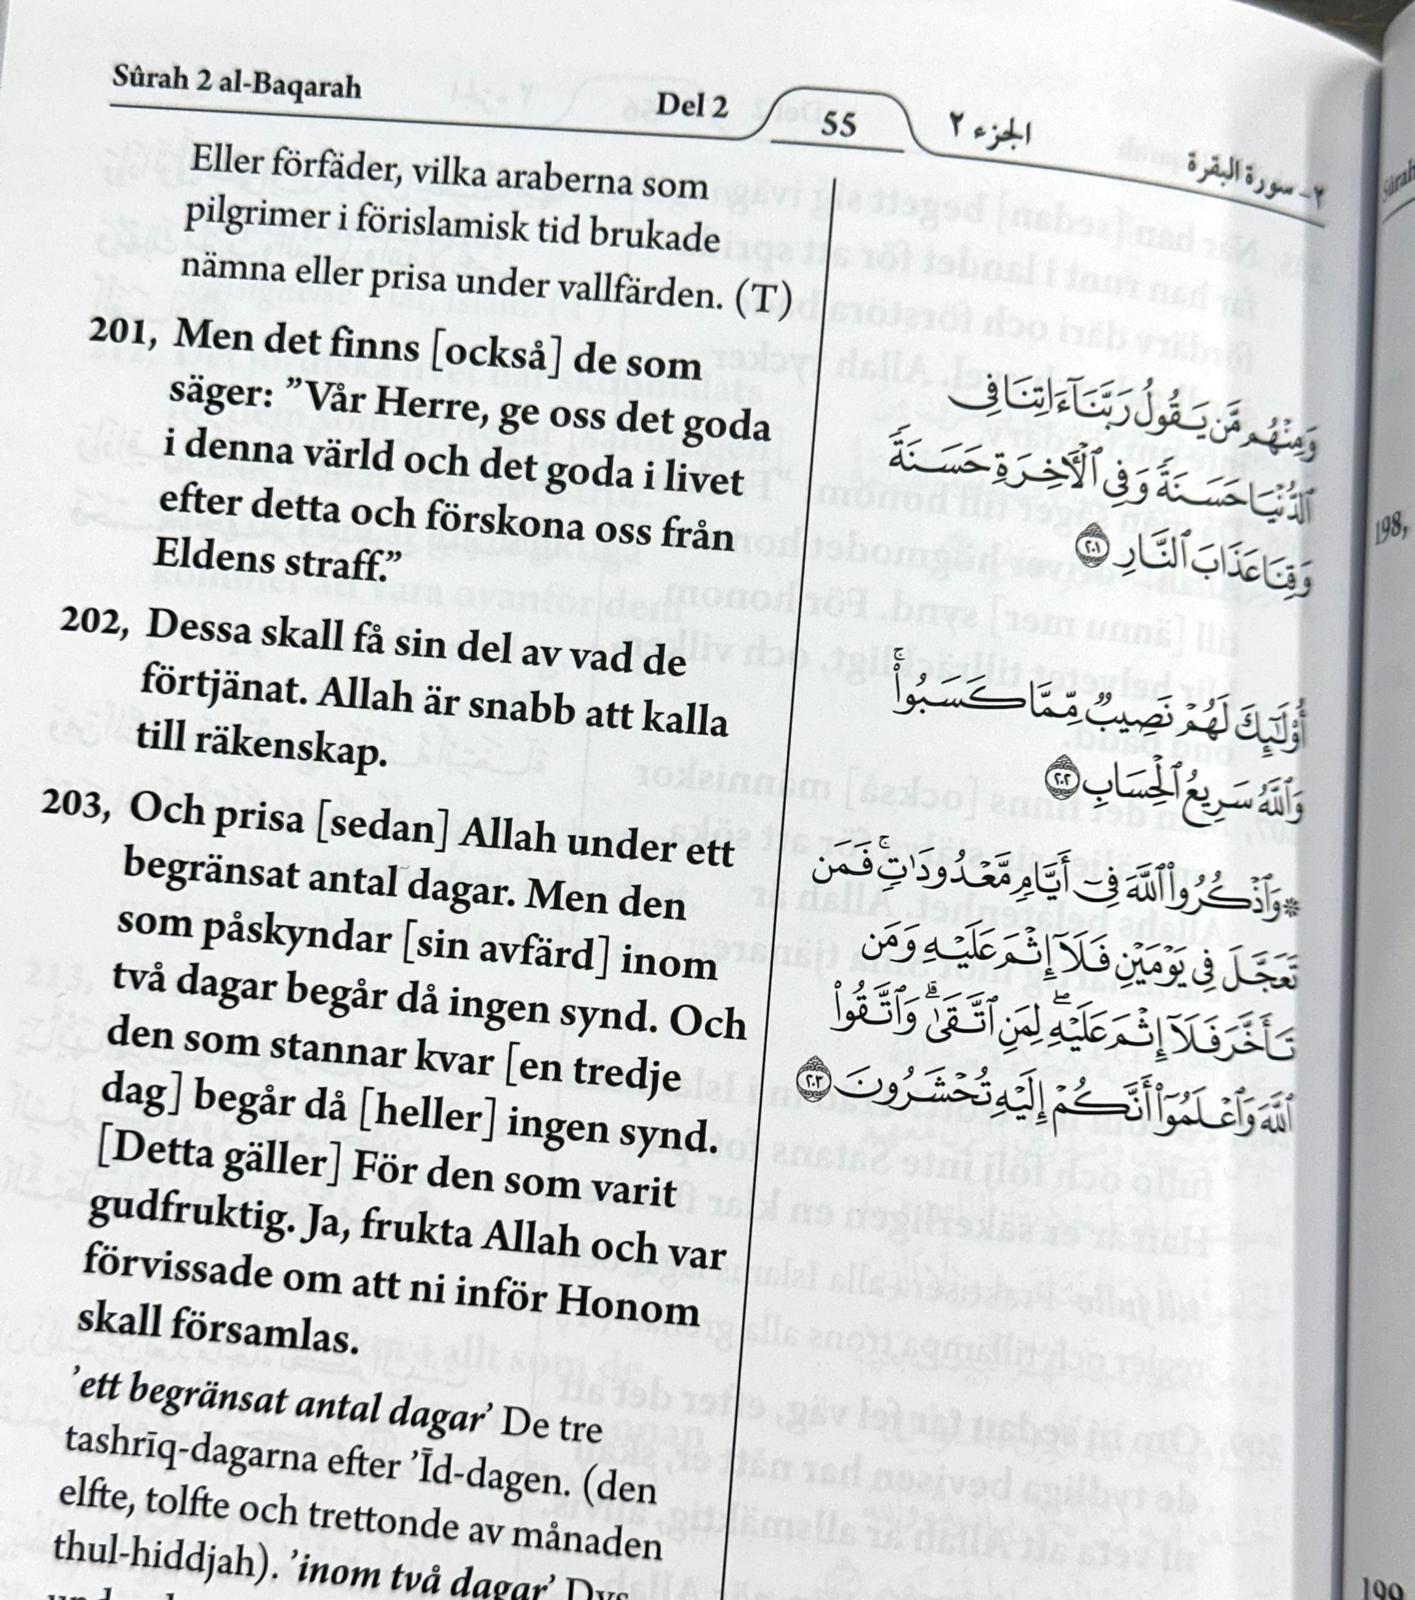 Sûrah 2 al-Baqarah
Del 2
55
الجزء ٢
٢- سورة البقرة
Eller förfäder, vilka araberna som
pilgrimer i förislamisk tid brukade
nämna eller prisa under vallfärden. (T)
201, Men det finns [också] de som
säger: ”Vår Herre, ge oss det goda
i denna värld och det goda i livet
efter detta och förskona oss från
Eldens straff.”
202, Dessa skall få sin del av vad de
förtjänat. Allah är snabb att kalla
till räkenskap.
203, Och prisa [sedan] Allah under ett
begränsat antal dagar. Men den
som påskyndar [sin avfärd] inom
två dagar begår då ingen synd. Och
den som stannar kvar [en tredje
dag] begår då [heller] ingen synd.
[Detta gäller] För den som varit
gudfruktig. Ja, frukta Allah och var
förvissade om att ni inför Honom
skall församlas.
’ett begränsat antal dagar’ De tre
tashrīq-dagarna efter ’Īd-dagen. (den
elfte, tolfte och trettonde av månaden
thul-hiddjah). ’inom två dagar’ Dvs
وَمِنْهُم مَّن يَقُولُ رَبَّنَآ ءَاتِنَا فِي
ٱلدُّنْيَا حَسَنَةً وَفِي ٱلْأَخِرَةِ حَسَنَةً
وَقِنَا عَذَابَ ٱلنَّارِ ٢٠١
أُوْلَٰٓئِكَ لَهُمْ نَصِيبٌ مِّمَّا كَسَبُواْۚ
وَٱللَّهُ سَرِيعُ ٱلْحِسَابِ ٢٠٢
۞ وَٱذْكُرُواْ ٱللَّهَ فِيٓ أَيَّامٍ مَّعْدُودَٰتٍۚ فَمَن
تَعَجَّلَ فِي يَوْمَيْنِ فَلَآ إِثْمَ عَلَيْهِ وَمَن
تَأَخَّرَ فَلَآ إِثْمَ عَلَيْهِۖ لِمَنِ ٱتَّقَىٰۗ وَٱتَّقُواْ
ٱللَّهَ وَٱعْلَمُوٓاْ أَنَّكُمْ إِلَيْهِ تُحْشَرُونَ ٢٠٣
198,
199